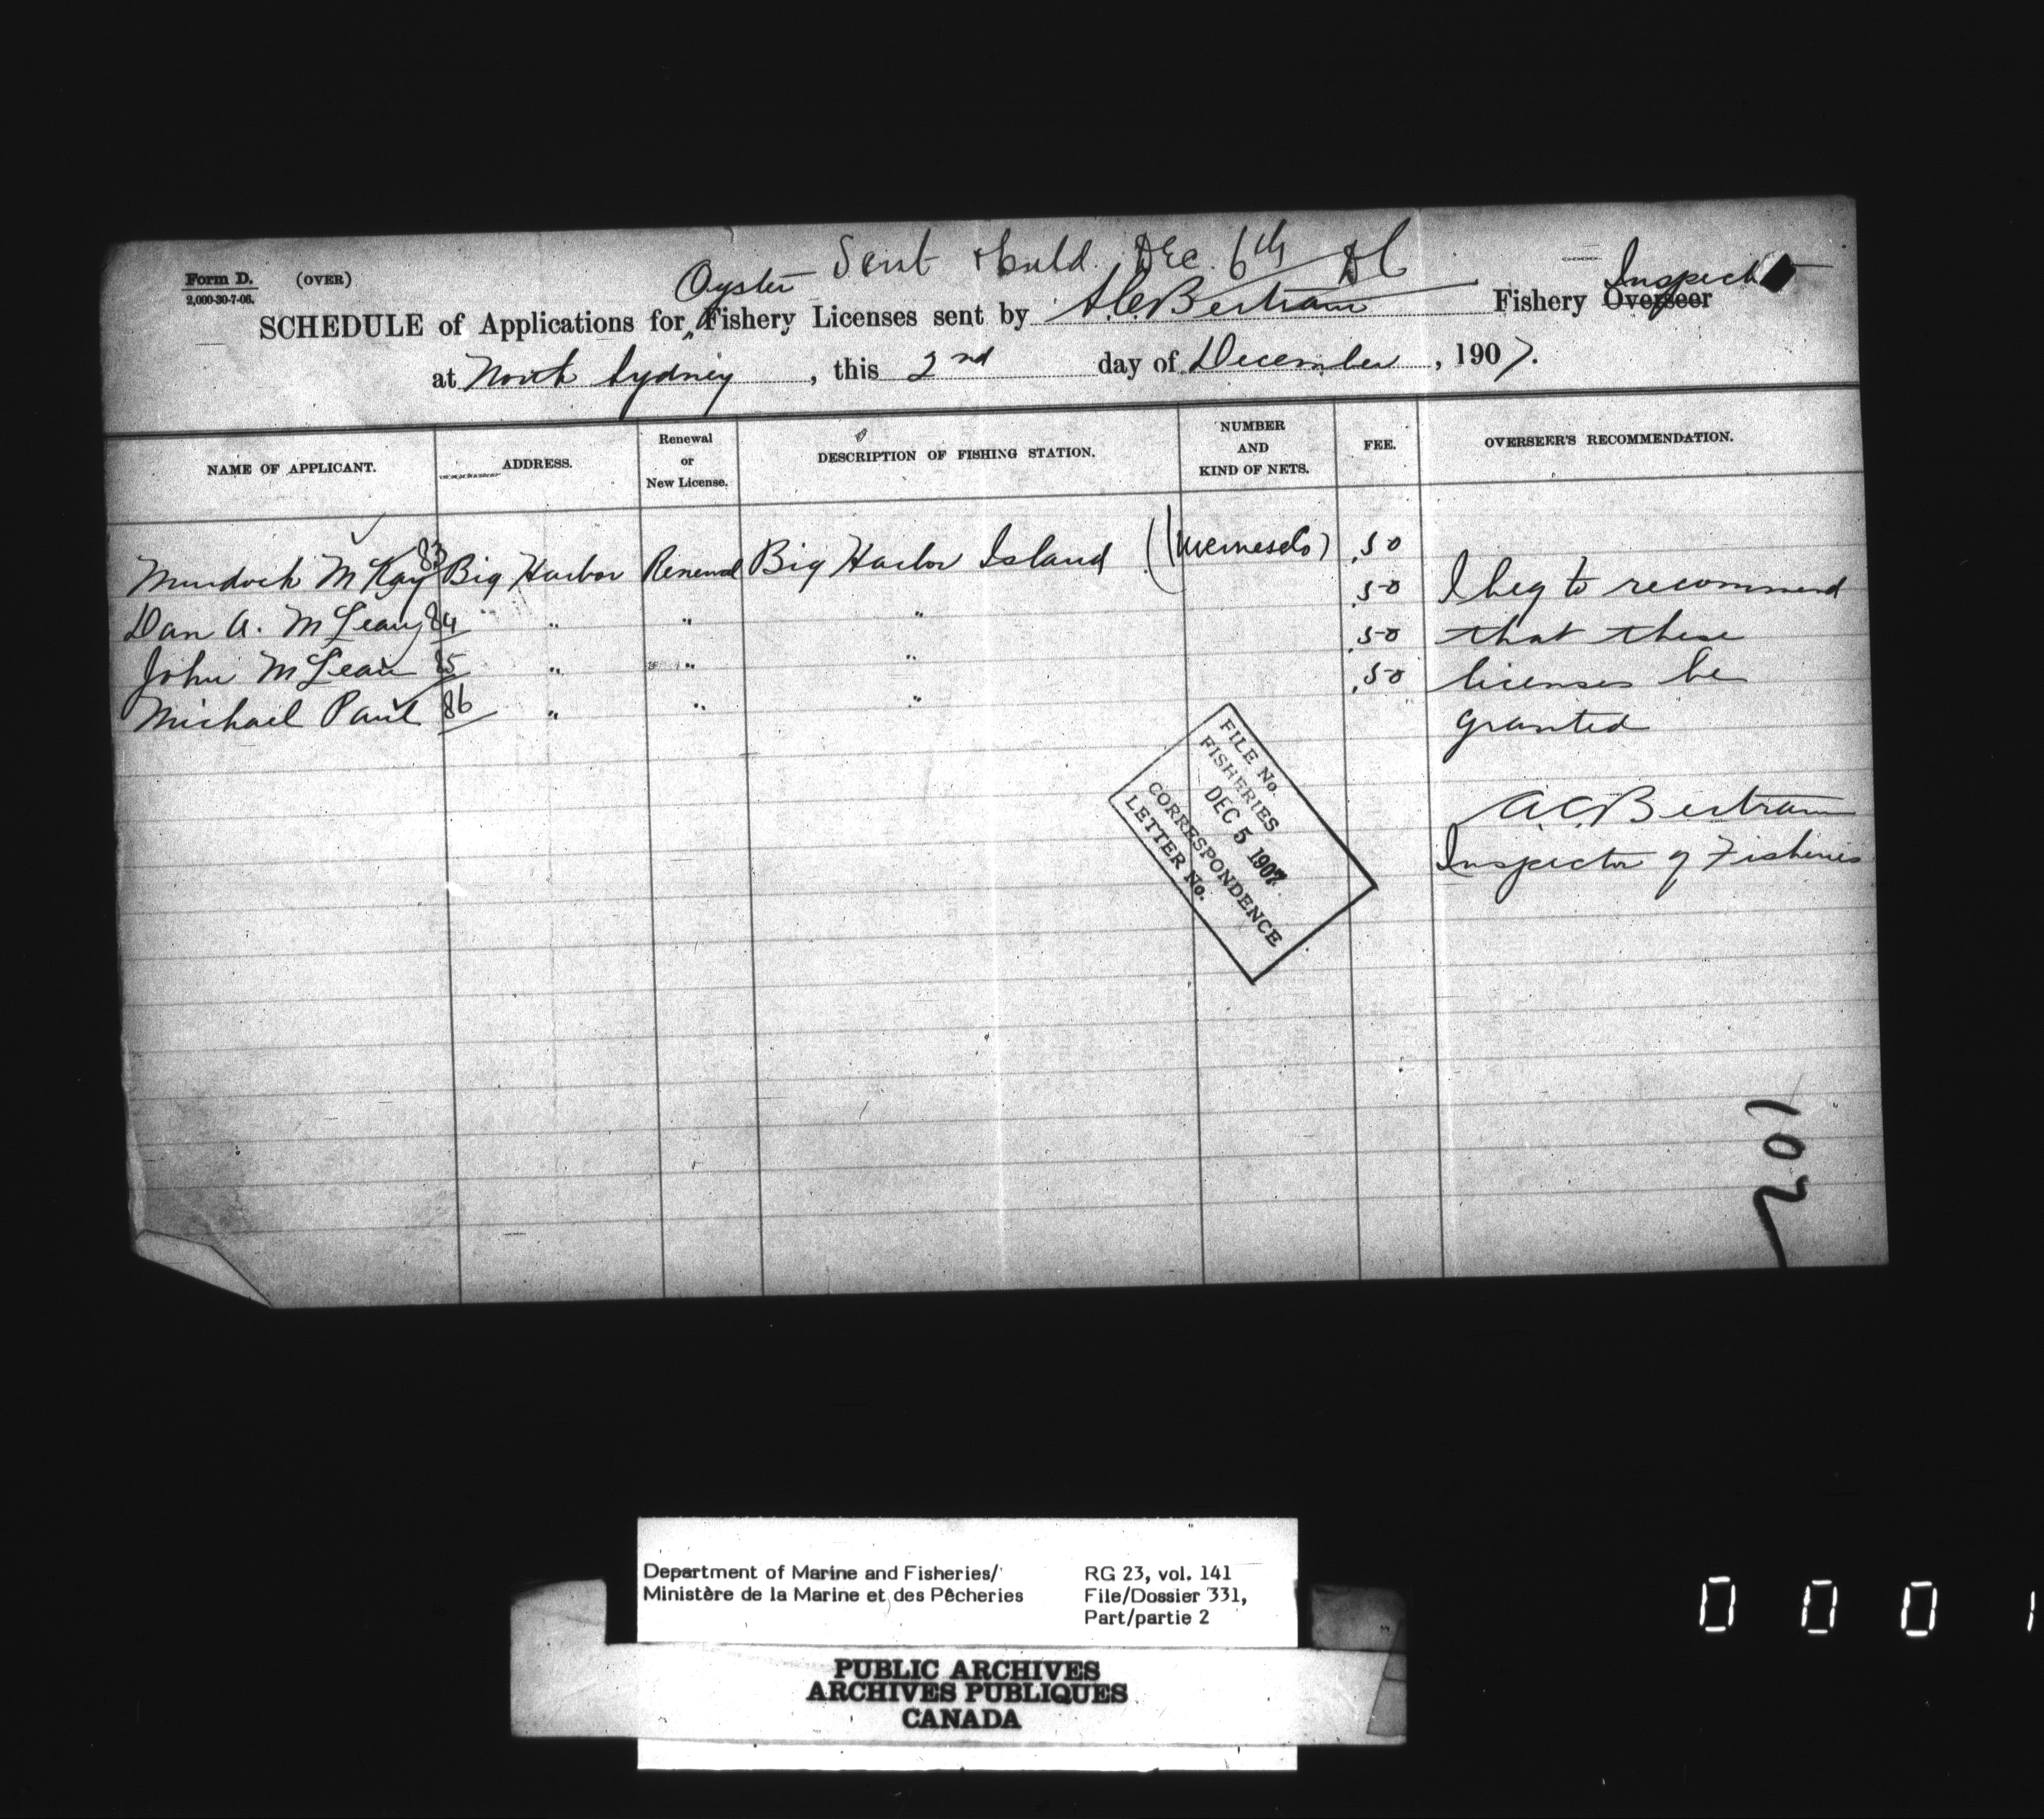 Sent & Entd. Dec. 6th
Form D. (OVER)
2,000-30-7-06.
Oyster
Inspector
SCHEDULE of Applications for Fishery Licenses sent by A.C. Bertram Fishery Overseer
at North Sydney, this 2nd day of December, 1907.
NAME OF APPLICANT. ADDRESS. Renewal or New License. DESCRIPTION OF FISHING STATION. NUMBER AND KIND OF NETS. FEE. OVERSEER'S RECOMMENDATION.
Murdoch McKay 83 Big Harbor Renewal Big Harbor Island (Inverness Co) .50
Dan A. McLean 84 " " " .50 I beg to recommend
John McLean 85 " " " .50 that these
Michael Paul 86 " " " .50 licenses be
granted
A.C. Bertram
Inspector of Fisheries
FILE No.
FISHERIES
DEC 5 1907
CORRESPONDENCE
LETTER No.
107
Department of Marine and Fisheries/
Ministère de la Marine et des Pêcheries
RG 23, vol. 141
File/Dossier 331,
Part/partie 2
PUBLIC ARCHIVES
ARCHIVES PUBLIQUES
CANADA
0 0 0 1